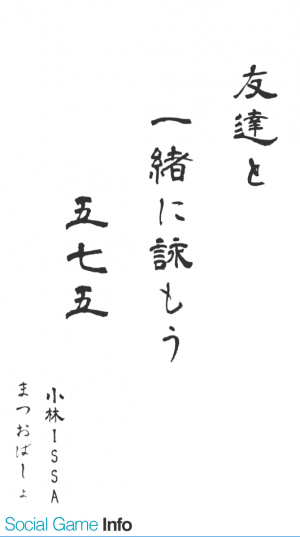 友達と
一緒に詠もう
五七五
小林ISSA
まつおばしょ
Social Game Info